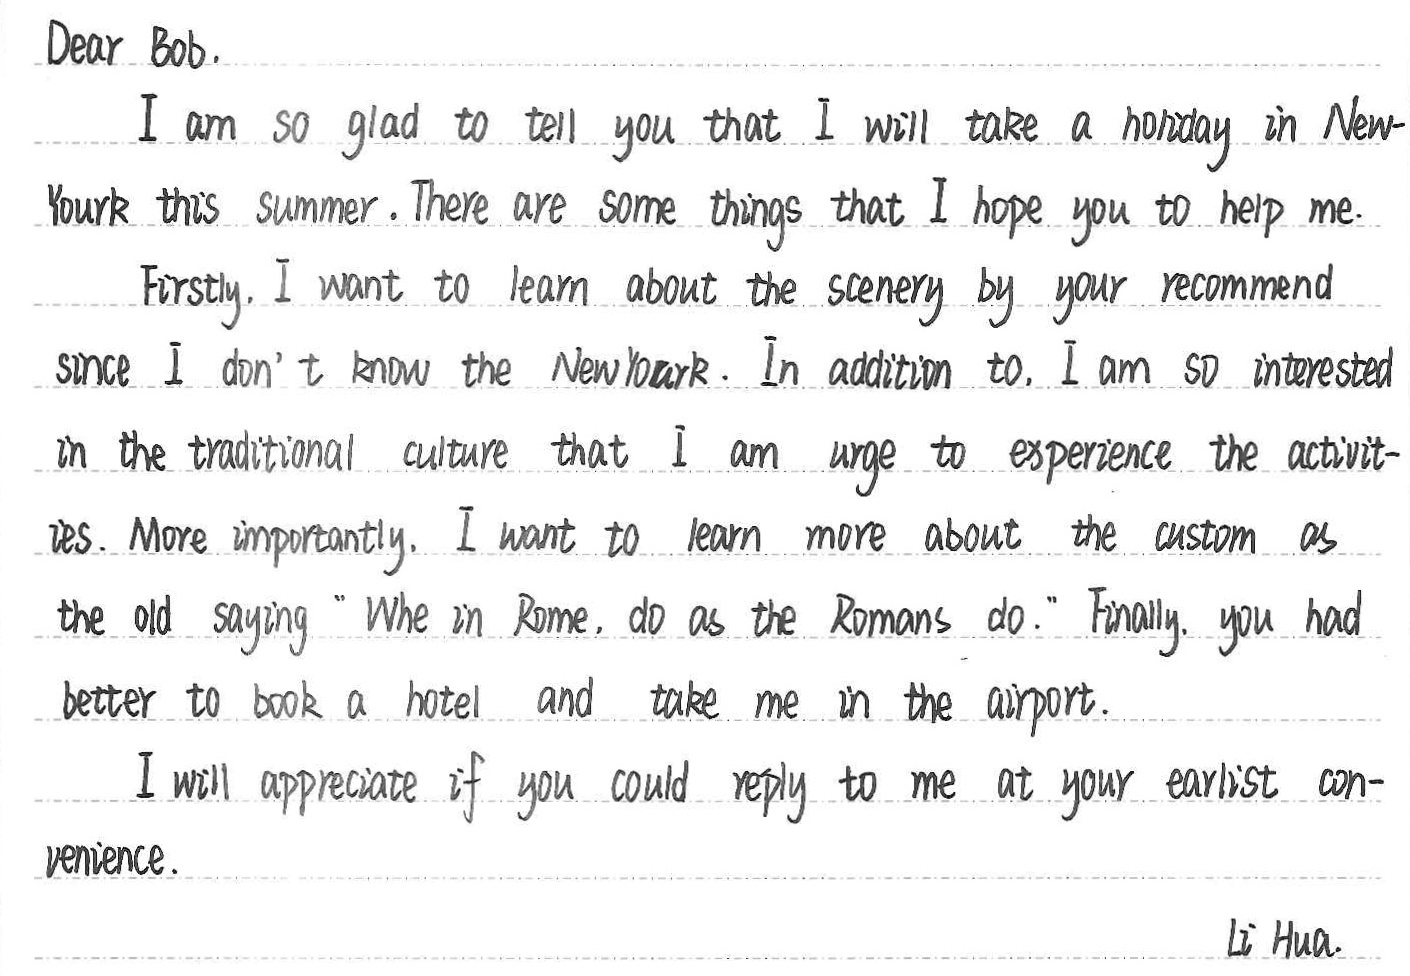 Dear Bob.
I am so glad to tell you that I will take a honiday in New-
Yourk this summer. There are some things that I hope you to help me.
Firstly. I want to learn about the scenery by your recommend
since I don't know the New Yourk. In addition to. I am so interested
in the traditional culture that I am urge to experience the activit-
ies. More importantly. I want to learn more about the custom as
the old saying " Whe in Rome. do as the Romans do." Finally. you had
better to book a hotel and take me in the airport.
I will appreciate if you could reply to me at your earlist con-
venience.
Li Hua.